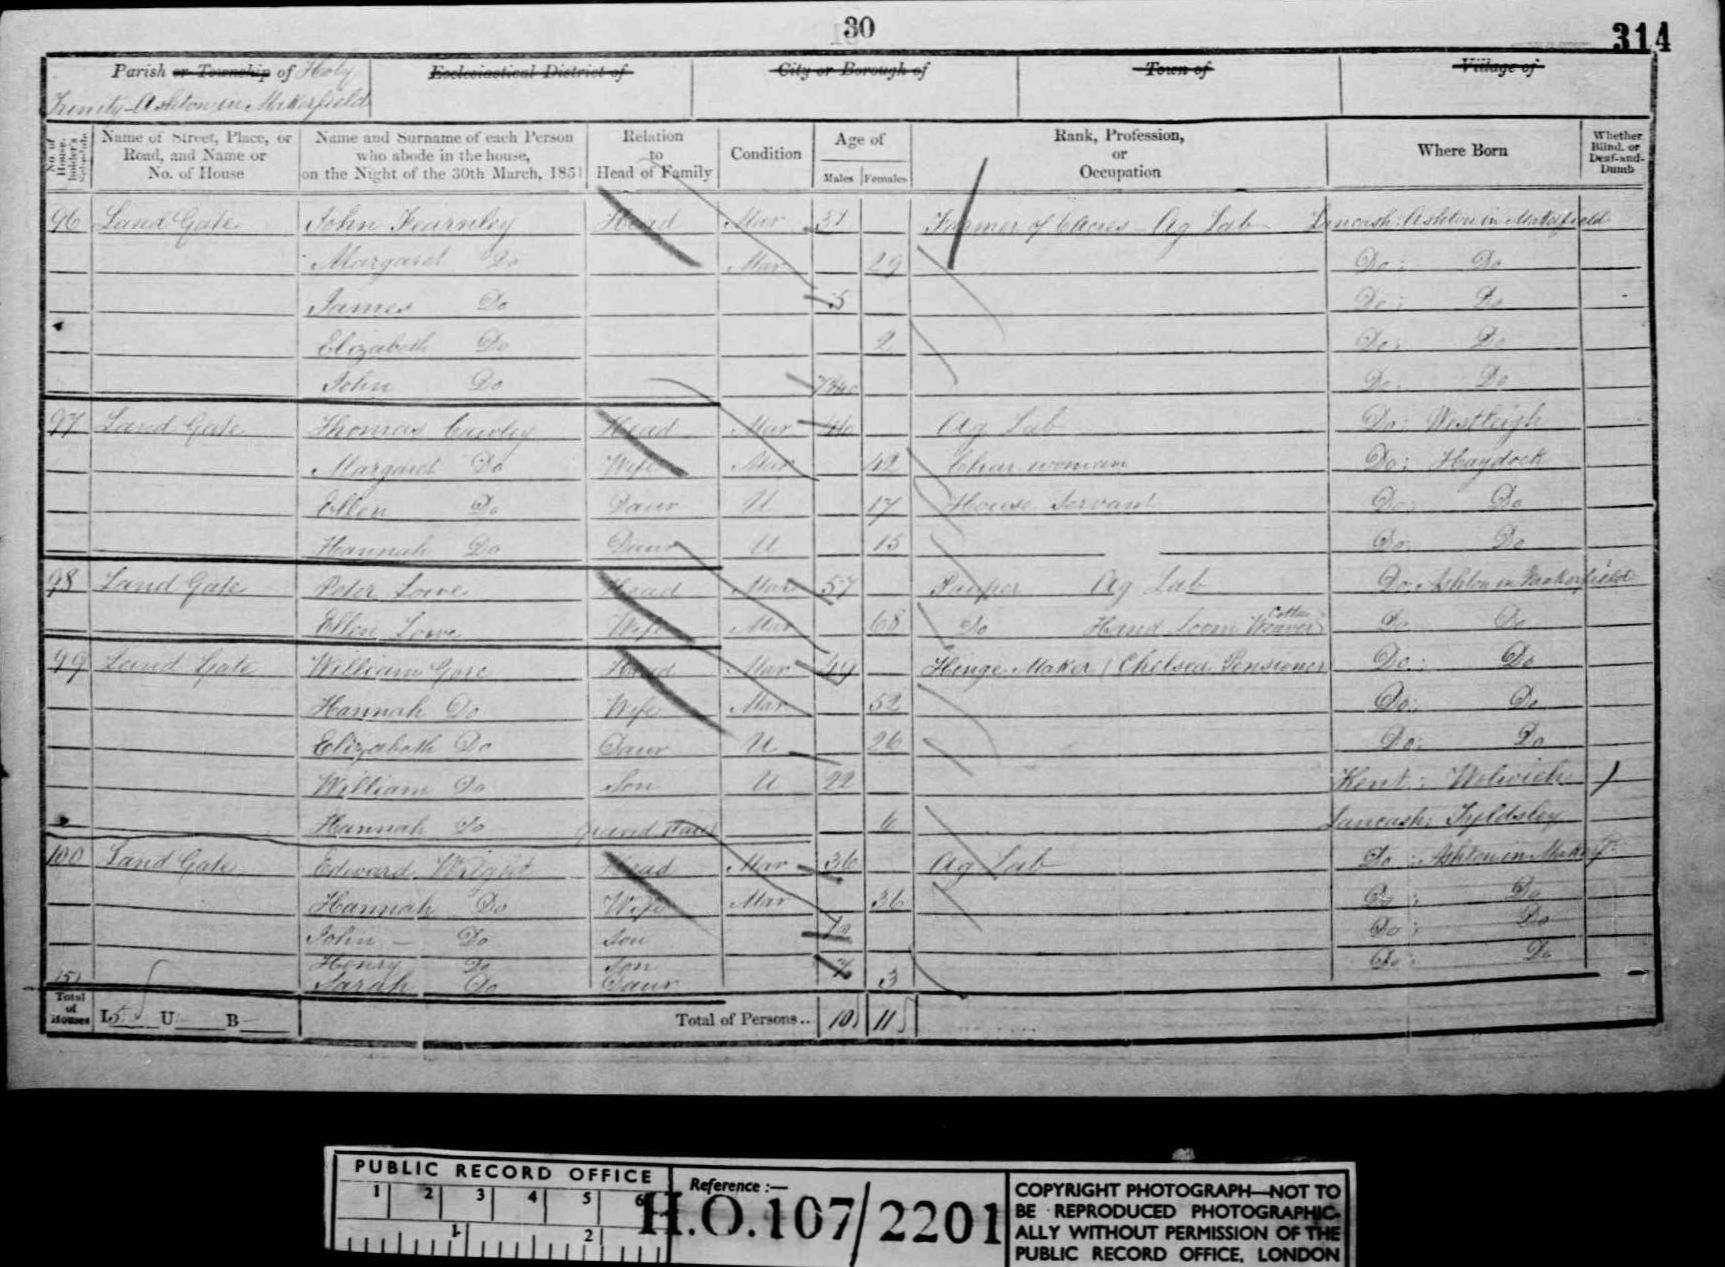 30
314
Parish or Township of Holy Trinity Ashton in Makerfield
Ecclesiastical District of
City or Borough of
Town of
Village of
No. of House-holder's Schedule
Name of Street, Place, or Road, and Name or No. of House
Name and Surname of each Person who abode in the house, on the Night of the 30th March, 1851
Relation to Head of Family
Condition
Age of
Males
Females
Rank, Profession, or Occupation
Where Born
Whether Blind, or Deaf-and-Dumb
96 Land Gate John Fearnley Head Mar 31 Farmer of 6 Acres - Ag Lab Lancash: Ashton in Makerfield
Margaret Do Mar 29 Do: Do
James Do 5 Do: Do
Elizabeth Do 2 Do: Do
John Do Do: Do
97 Land Gate Thomas Cawley Head Mar 46 Ag Lab Do: Westleigh
Margaret Do Wife Mar 42 Char woman Do: Haydock
Ellen Do Daur U 17 House Servant Do: Do
Hannah Do Daur U 15 Do: Do
98 Land Gate Peter Lowe Head Mar 57 Pauper Ag Lab Do: Ashton in Makerfield
Ellen Lowe Wife Mar 68 Do Hand Loom Cotton Weaver Do Do
99 Land Gate William Gore Head Mar Hinge Maker (Chelsea Pensioner) Do: Do
Hannah Do Wife Mar 52 Do: Do
Elizabeth Do Daur U 26 Do: Do
William Do Son U 22 Kent: Wolwich
Hannah Do Grand Daur 6 Lancash: Tyldsley
100 Land Gate Edward Wright Head Mar 36 Ag Lab Do: Ashton in Makerf
Hannah Do Wife Mar 36 Do: Do
John - Do Son 12 Do: Do
Henry Do Son 7 Do: Do
Sarah Do Daur 3
Total of Houses I 5 U B Total of Persons.. 10 11
PUBLIC RECORD OFFICE
1 2 3 4 5 6
1 2
Reference :—
H.O.107/2201
COPYRIGHT PHOTOGRAPH—NOT TO
BE REPRODUCED PHOTOGRAPHIC-
ALLY WITHOUT PERMISSION OF THE
PUBLIC RECORD OFFICE, LONDON